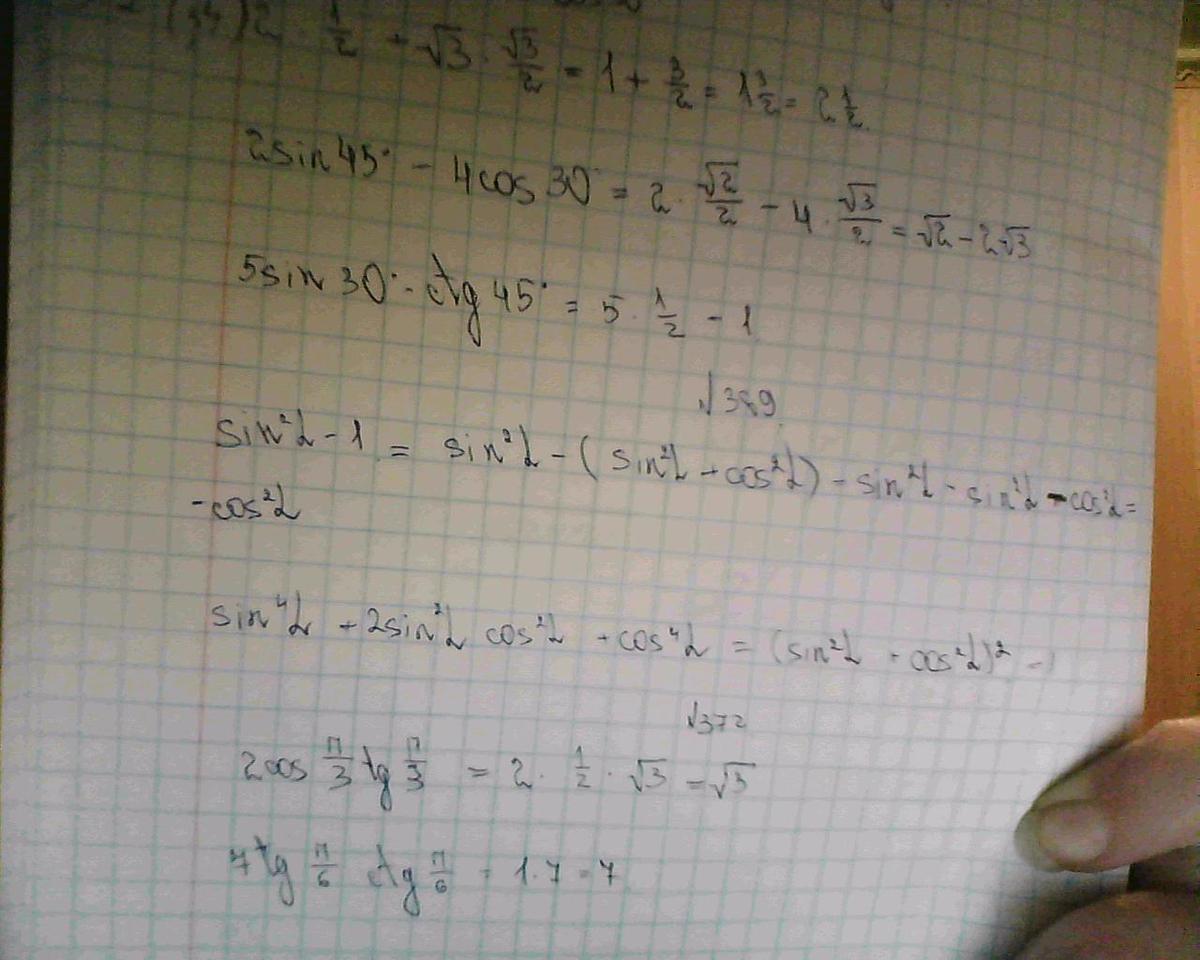 2 · 1/2 + √3 · √3/2 = 1 + 3/2 = 1 3/2 = 2 1/2
2sin 45° - 4cos 30° = 2 · √2/2 - 4 · √3/2 = √2 - 2√3
5sin 30° - ctg 45° = 5 · 1/2 - 1
√389
sin²α - 1 = sin²α - (sin²α + cos²α) - sin²α - sin²α - cos²α =
- cos²α
sin⁴α + 2sin²α cos²α + cos⁴α = (sin²α + cos²α)² = 1
√372
2cos π/3 tg π/3 = 2 · 1/2 · √3 = √3
7 tg π/6 ctg π/6 = 1 · 7 = 7